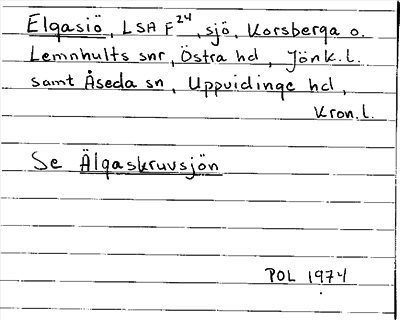 Elgasiö, LSA F24, sjö, Korsberga o.
Lemnhults snr, Östra hd, Jönk.l.
samt Åseda sn, Uppvidinge hd,
Kron.l.
Se Älgaskruvsjön
POL 1974